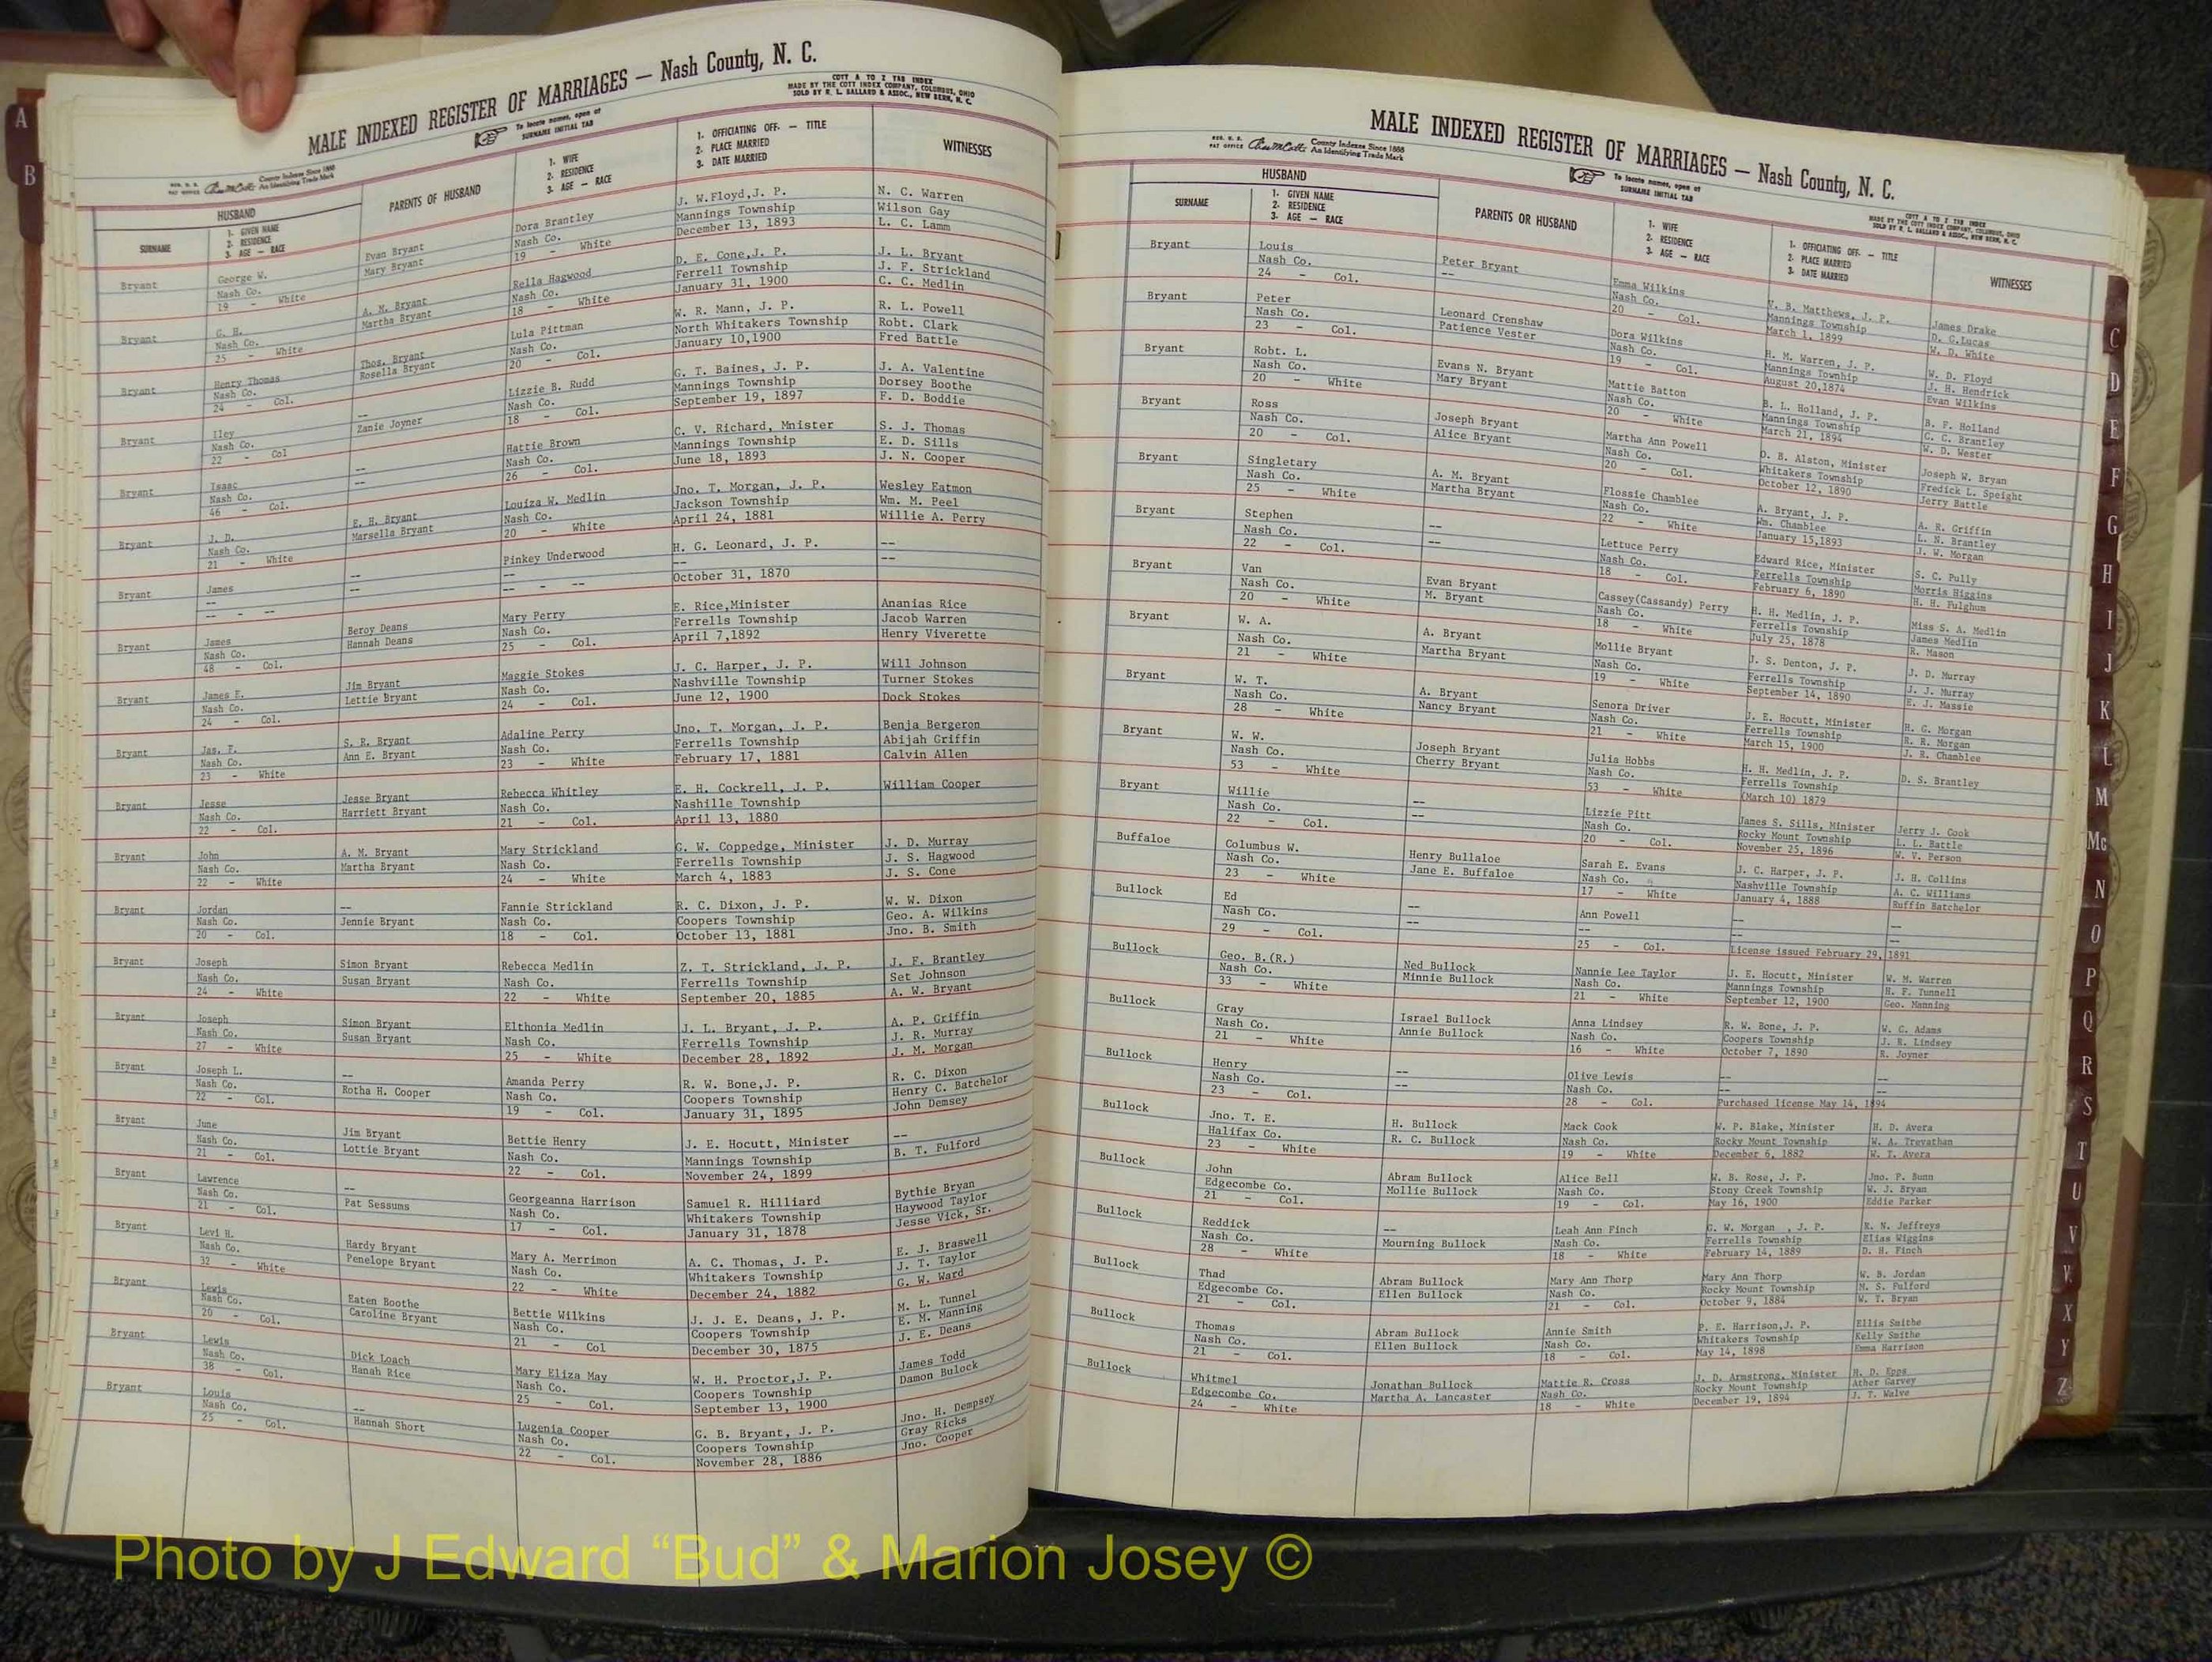 MALE INDEXED REGISTER OF MARRIAGES — Nash County, N. C.
COTT A TO Z TAB INDEX
MADE BY THE COTT INDEX COMPANY, COLUMBUS, OHIO
SOLD BY R. L. BALLARD & ASSOC., NEW BERN, N. C.
To locate names, open at
SURNAME INITIAL TAB
County Indexes Since 1888
An Identifying Trade Mark
HUSBAND
SURNAME
1. GIVEN NAME
2. RESIDENCE
3. AGE — RACE
PARENTS OF HUSBAND
1. WIFE
2. RESIDENCE
3. AGE — RACE
1. OFFICIATING OFF. — TITLE
2. PLACE MARRIED
3. DATE MARRIED
WITNESSES
Bryant George W. Evan Bryant Dora Brantley J. W.Floyd,J. P. N. C. Warren
Nash Co. Mary Bryant Nash Co. Mannings Township Wilson Gay
19 - White 19 - White December 13, 1893 L. C. Lamm
Bryant G. H. A. M. Bryant Rella Hagwood D. E. Cone,J. P. J. L. Bryant
Nash Co. Martha Bryant Nash Co. Ferrell Township J. F. Strickland
25 - White 18 - White January 31, 1900 C. C. Medlin
Bryant Henry Thomas Thos. Bryant Lula Pittman W. R. Mann, J. P. R. L. Powell
Nash Co. Rosella Bryant Nash Co. North Whitakers Township Robt. Clark
24 - Col. 20 - Col. January 10,1900 Fred Battle
Bryant Iley -- Lizzie B. Rudd G. T. Baines, J. P. J. A. Valentine
Nash Co. Zanie Joyner Nash Co. Mannings Township Dorsey Boothe
22 - Col 18 - Col. September 19, 1897 F. D. Boddie
Bryant Isaac -- Hattie Brown C. V. Richard, Mnister S. J. Thomas
Nash Co. -- Nash Co. Mannings Township E. D. Sills
46 - Col. 26 - Col. June 18, 1893 J. N. Cooper
Bryant J. D. E. H. Bryant Louiza W. Medlin Jno. T. Morgan, J. P. Wesley Eatmon
Nash Co. Marsella Bryant Nash Co. Jackson Township Wm. M. Peel
21 - White 20 - White April 24, 1881 Willie A. Perry
Bryant James -- Pinkey Underwood H. G. Leonard, J. P. --
-- -- -- -- --
-- - -- -- - -- October 31, 1870
Bryant James Beroy Deans Mary Perry E. Rice,Minister Ananias Rice
Nash Co. Hannah Deans Nash Co. Ferrells Township Jacob Warren
48 - Col. 25 - Col. April 7,1892 Henry Viverette
Bryant James E. Jim Bryant Maggie Stokes J. C. Harper, J. P. Will Johnson
Nash Co. Lettie Bryant Nash Co. Nashville Township Turner Stokes
24 - Col. 24 - Col. June 12, 1900 Dock Stokes
Bryant Jas. F. S. R. Bryant Adaline Perry Jno. T. Morgan, J. P. Benja Bergeron
Nash Co. Ann E. Bryant Nash Co. Ferrells Township Abijah Griffin
23 - White 23 - White February 17, 1881 Calvin Allen
Bryant Jesse Jesse Bryant Rebecca Whitley E. H. Cockrell, J. P. William Cooper
Nash Co. Harriett Bryant Nash Co. Nashille Township
22 - Col. 21 - Col. April 13, 1880
Bryant John A. M. Bryant Mary Strickland G. W. Coppedge, Minister J. D. Murray
Nash Co. Martha Bryant Nash Co. Ferrells Township J. S. Hagwood
22 - White 24 - White March 4, 1883 J. S. Cone
Bryant Jordan -- Fannie Strickland R. C. Dixon, J. P. W. W. Dixon
Nash Co. Jennie Bryant Nash Co. Coopers Township Geo. A. Wilkins
20 - Col. 18 - Col. October 13, 1881 Jno. B. Smith
Bryant Joseph Simon Bryant Rebecca Medlin Z. T. Strickland, J. P. J. F. Brantley
Nash Co. Susan Bryant Nash Co. Ferrells Township Set Johnson
24 - White 22 - White September 20, 1885 A. W. Bryant
Bryant Joseph Simon Bryant Elthonia Medlin J. L. Bryant, J. P. A. P. Griffin
Nash Co. Susan Bryant Nash Co. Ferrells Township J. R. Murray
27 - White 25 - White December 28, 1892 J. M. Morgan
Bryant Joseph L. -- Amanda Perry R. W. Bone,J. P. R. C. Dixon
Nash Co. Rotha H. Cooper Nash Co. Coopers Township Henry C. Batchelor
22 - Col. 19 - Col. January 31, 1895 John Demsey
Bryant June Jim Bryant Bettie Henry J. E. Hocutt, Minister --
Nash Co. Lottie Bryant Nash Co. Mannings Township B. T. Fulford
21 - Col. 22 - Col. November 24, 1899
Bryant Lawrence -- Georgeanna Harrison Samuel R. Hilliard Bythie Bryan
Nash Co. Pat Sessums Nash Co. Whitakers Township Haywood Taylor
21 - Col. 17 - Col. January 31, 1878 Jesse Vick, Sr.
Bryant Levi H. Hardy Bryant Mary A. Merrimon A. C. Thomas, J. P. E. J. Braswell
Nash Co. Penelope Bryant Nash Co. Whitakers Township J. T. Taylor
32 - White 22 - White December 24, 1882 G. W. Ward
Bryant Lewis Eaten Boothe Bettie Wilkins J. J. E. Deans, J. P. M. L. Tunnel
Nash Co. Caroline Bryant Nash Co. Coopers Township E. M. Manning
20 - Col. 21 - Col December 30, 1875 J. E. Deans
Bryant Lewis Dick Loach Mary Eliza May W. H. Proctor,J. P. James Todd
Nash Co. Hanah Rice Nash Co. Coopers Township Damon Bulock
38 - Col. 25 - Col. September 13, 1900
Bryant Louis -- Lugenia Cooper G. B. Bryant, J. P. Jno. H. Dempsey
Nash Co. Hannah Short Nash Co. Coopers Township Gray Ricks
25 - Col. 22 - Col. November 28, 1886 Jno. Cooper
MALE INDEXED REGISTER OF MARRIAGES — Nash County, N. C.
County Indexes Since 1888
An Identifying Trade Mark
To locate names, open at
SURNAME INITIAL TAB
COTT A TO Z TAB INDEX
MADE BY THE COTT INDEX COMPANY, COLUMBUS, OHIO
SOLD BY R. L. BALLARD & ASSOC., NEW BERN, N. C.
HUSBAND
SURNAME
1. GIVEN NAME
2. RESIDENCE
3. AGE — RACE
PARENTS OR HUSBAND
1. WIFE
2. RESIDENCE
3. AGE — RACE
1. OFFICIATING OFF. — TITLE
2. PLACE MARRIED
3. DATE MARRIED
WITNESSES
Bryant Louis Peter Bryant Emma Wilkins N. B. Matthews, J. P. James Drake
Nash Co. -- Nash Co. Mannings Township D. G.Lucas
24 - Col. 20 - Col. March 1, 1899 W. D. White
Bryant Peter Leonard Crenshaw Dora Wilkins H. M. Warren, J. P. W. D. Floyd
Nash Co. Patience Vester Nash Co. Mannings Township J. H. Hendrick
23 - Col. 19 - Col. August 20,1874 Evan Wilkins
Bryant Robt. L. Evans N. Bryant Mattie Batton B. L. Holland, J. P. B. F. Holland
Nash Co. Mary Bryant Nash Co. Mannings Township C. C. Brantley
20 - White 20 - White March 21, 1894 W. D. Wester
Bryant Ross Joseph Bryant Martha Ann Powell D. B. Alston, Minister Joseph W. Bryan
Nash Co. Alice Bryant Nash Co. Whitakers Township Fredick L. Speight
20 - Col. 20 - Col. October 12, 1890 Jerry Battle
Bryant Singletary A. M. Bryant Flossie Chamblee A. Bryant, J. P. A. R. Griffin
Nash Co. Martha Bryant Nash Co. Wm. Chamblee L. N. Brantley
25 - White 22 - White January 15,1893 J. W. Morgan
Bryant Stephen -- Lettuce Perry Edward Rice, Minister S. C. Pully
Nash Co. -- Nash Co. Ferrells Township Morris Higgins
22 - Col. 18 - Col. February 6, 1890 H. H. Fulghum
Bryant Van Evan Bryant Cassey(Cassandy) Perry H. H. Medlin, J. P. Miss S. A. Medlin
Nash Co. M. Bryant Nash Co. Ferrells Township James Medlin
20 - White 18 - White July 25, 1878 R. Mason
Bryant W. A. A. Bryant Mollie Bryant J. S. Denton, J. P. J. D. Murray
Nash Co. Martha Bryant Nash Co. Ferrells Township J. J. Murray
21 - White 19 - White September 14, 1890 H. J. Massie
Bryant W. T. A. Bryant Senora Driver J. E. Hocutt, Minister H. G. Morgan
Nash Co. Nancy Bryant Nash Co. Ferrells Township R. R. Morgan
28 - White 21 - White March 15, 1900 J. R. Chamblee
Bryant W. W. Joseph Bryant Julia Hobbs H. H. Medlin, J. P. D. S. Brantley
Nash Co. Cherry Bryant Nash Co. Ferrells Township
53 - White 53 - White (March 10) 1879
Bryant Willie -- Lizzie Pitt James S. Sills, Minister Jerry J. Cook
Nash Co. -- Nash Co. Rocky Mount Township L. L. Battle
22 - Col. 20 - Col. November 25, 1896 W. V. Person
Buffaloe Columbus W. Henry Bullaloe Sarah E. Evans J. C. Harper, J. P. J. H. Collins
Nash Co. Jane E. Buffaloe Nash Co. Nashville Township A. C. Williams
23 - White 17 - White January 4, 1888 Ruffin Batchelor
Bullock Ed -- Ann Powell -- --
Nash Co. -- -- -- --
29 - Col. 25 - Col. License issued February 29, 1891
Bullock Geo. B.(R.) Ned Bullock Nannie Lee Taylor J. E. Hocutt, Minister W. M. Warren
Nash Co. Minnie Bullock Nash Co. Mannings Township H. F. Tunnell
33 - White 21 - White September 12, 1900 Geo. Manning
Bullock Gray Israel Bullock Anna Lindsey R. W. Bone, J. P. W. C. Adams
Nash Co. Annie Bullock Nash Co. Coopers Township J. R. Lindsey
21 - White 16 - White October 7, 1890 R. Joyner
Bullock Henry -- Olive Lewis -- --
Nash Co. -- Nash Co. -- --
23 - Col. 28 - Col. Purchased license May 14, 1894
Bullock Jno. T. E. H. Bullock Mack Cook W. P. Blake, Minister H. D. Avera
Halifax Co. R. C. Bullock Nash Co. Rocky Mount Township W. A. Trevathan
23 - White 19 - White December 6, 1882 W. T. Avera
Bullock John Abram Bullock Alice Bell W. B. Rose, J. P. Jno. P. Bunn
Edgecombe Co. Mollie Bullock Nash Co. Stony Creek Township W. J. Bryan
21 - Col. 19 - Col. May 16, 1900 Eddie Parker
Bullock Reddick -- Leah Ann Finch G. W. Morgan , J. P. R. N. Jeffreys
Nash Co. Mourning Bullock Nash Co. Ferrells Township Elias Wiggins
28 - White 18 - White February 14, 1889 D. H. Finch
Bullock Thad Abram Bullock Mary Ann Thorp Mary Ann Thorp W. B. Jordan
Edgecombe Co. Ellen Bullock Nash Co. Rocky Mount Township M. S. Fulford
21 - Col. 21 - Col. October 9, 1884 W. T. Bryan
Bullock Thomas Abram Bullock Annie Smith P. E. Harrison,J. P. Ellis Smithe
Nash Co. Ellen Bullock Nash Co. Whitakers Township Kelly Smithe
21 - Col. 18 - Col. May 14, 1898 Emma Harrison
Bullock Whitmel Jonathan Bullock Mattie R. Cross J. D. Armstrong, Minister H. D. Epps
Edgecombe Co. Martha A. Lancaster Nash Co. Rocky Mount Township Ather Garvey
24 - White 18 - White December 19, 1894 J. T. Walve
A
B
C
D
E
F
G
H
I
J
K
L
M
Mc
N
O
P
Q
R
S
T
U
V
W
X
Y
Z
Photo by J Edward “Bud” & Marion Josey ©